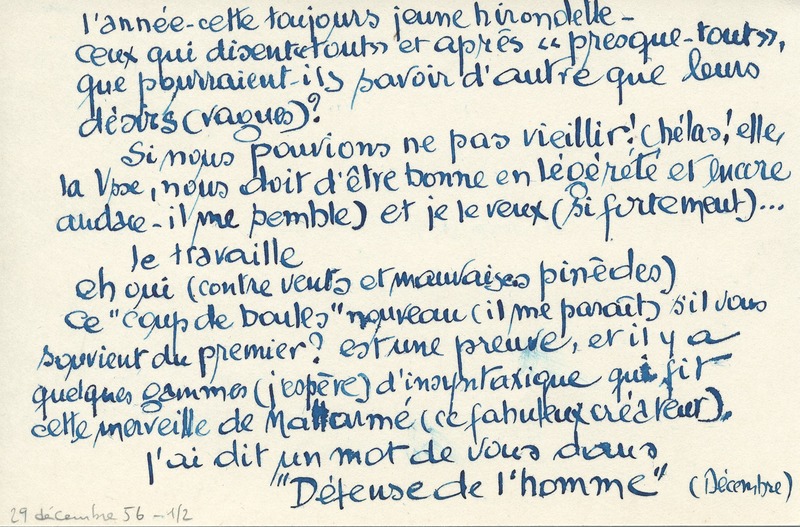 l'année-cette toujours jeune hirondelle-
ceux qui disent «tout» et après «presque-tout»,
que pourraient-ils savoir d'autre que leurs
désirs (vagues)?
Si nous pouvions ne pas vieillir! (hélas! elle,
la Vsse, nous doit d'être bonne en légéreté et encore
audace - il me semble) et je le veux (si fortement)...
Je travaille
eh oui (contre vents et mauvaises pinèdes)
ce "coup de boules" nouveau (il me paraît) s'il vous
souvient du premier? est une preuve, et il y a
quelques gammes (j'espère) d'insyntaxique qui fit
cette merveille de Mallarmé (ce fabuleux créateur).
J'ai dit un mot de vous dans
"Défense de l'homme" (Décembre)
29 décembre 56 - 1/2